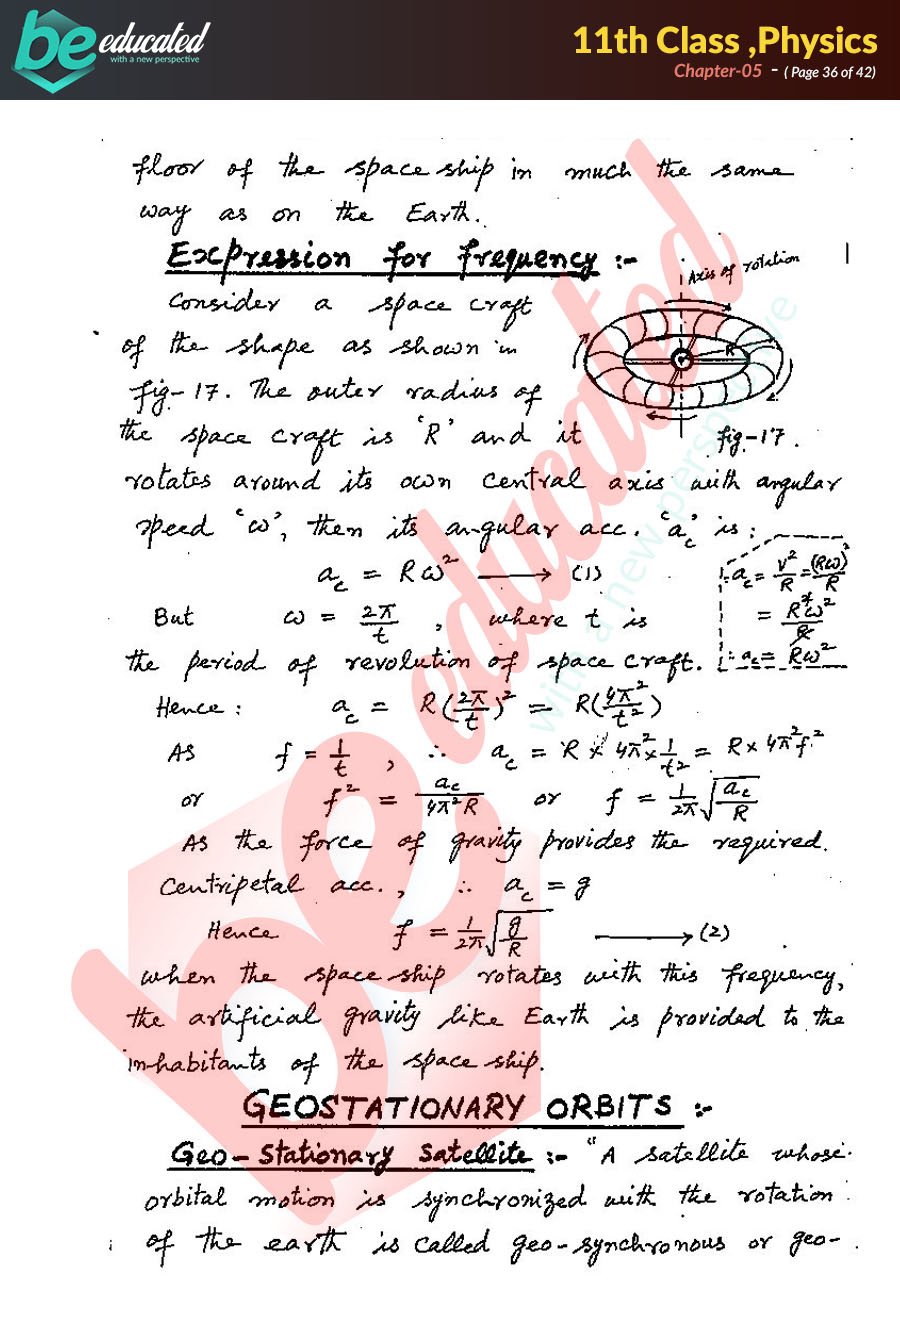 be educated
with a new perspective
11th Class ,Physics
Chapter-05 - ( Page 36 of 42)
floor of the space ship in much the same
way as on the Earth.
Expression for frequency :-
Axis of rotation
Consider a space craft
of the shape as shown in
fig-17. The outer radius of
R
the space craft is 'R' and it
fig-17.
rotates around its own central axis with angular
speed 'ω', then its angular acc. 'a_c' is:
a_c = Rω² ⟶ (1)
∵ a_c = v²/R = (Rω)²/R
= R²ω²/R
∴ a_c = Rω²
But ω = 2π/t , where t is
the period of revolution of space craft.
Hence: a_c = R(2π/t)² = R(4π²/t²)
As f = 1/t , ∴ a_c = R × 4π² × 1/t² = R × 4π²f²
or f² = a_c/4π²R or f = 1/2π √(a_c/R)
As the force of gravity provides the required.
Centripetal acc., ∴ a_c = g
Hence f = 1/2π √(g/R) ⟶ (2)
when the space ship rotates with this frequency,
the artificial gravity like Earth is provided to the
inhabitants of the space ship.
GEOSTATIONARY ORBITS :-
Geo-Stationary Satellite :- "A satellite whose
orbital motion is synchronized with the rotation
of the earth is called geo-synchronous or geo-
be educated
with a new perspective